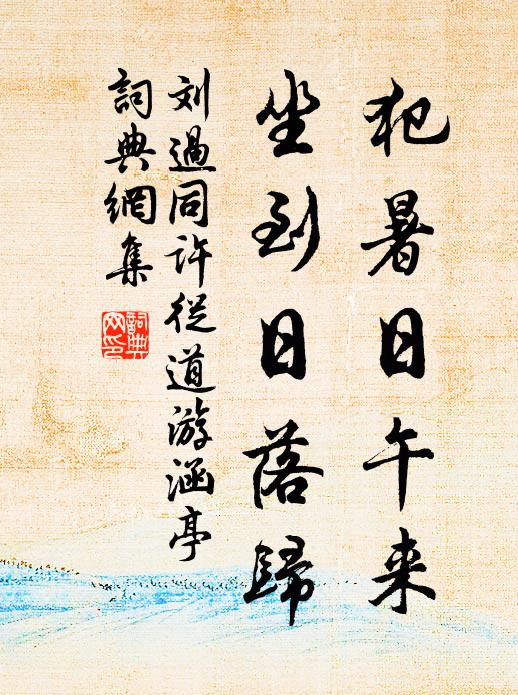 犯暑日午来
坐到日落歸
刘過同许從道游涵亭
詞典網集
詞典
网印